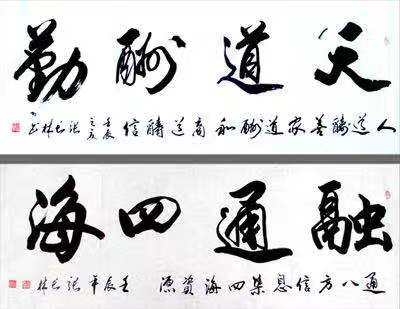 天道酬勤
人道酬善 家道酬和 商道酬信
壬辰之夏 张
融通四海
通八方信息 集四海资源
壬辰年 张